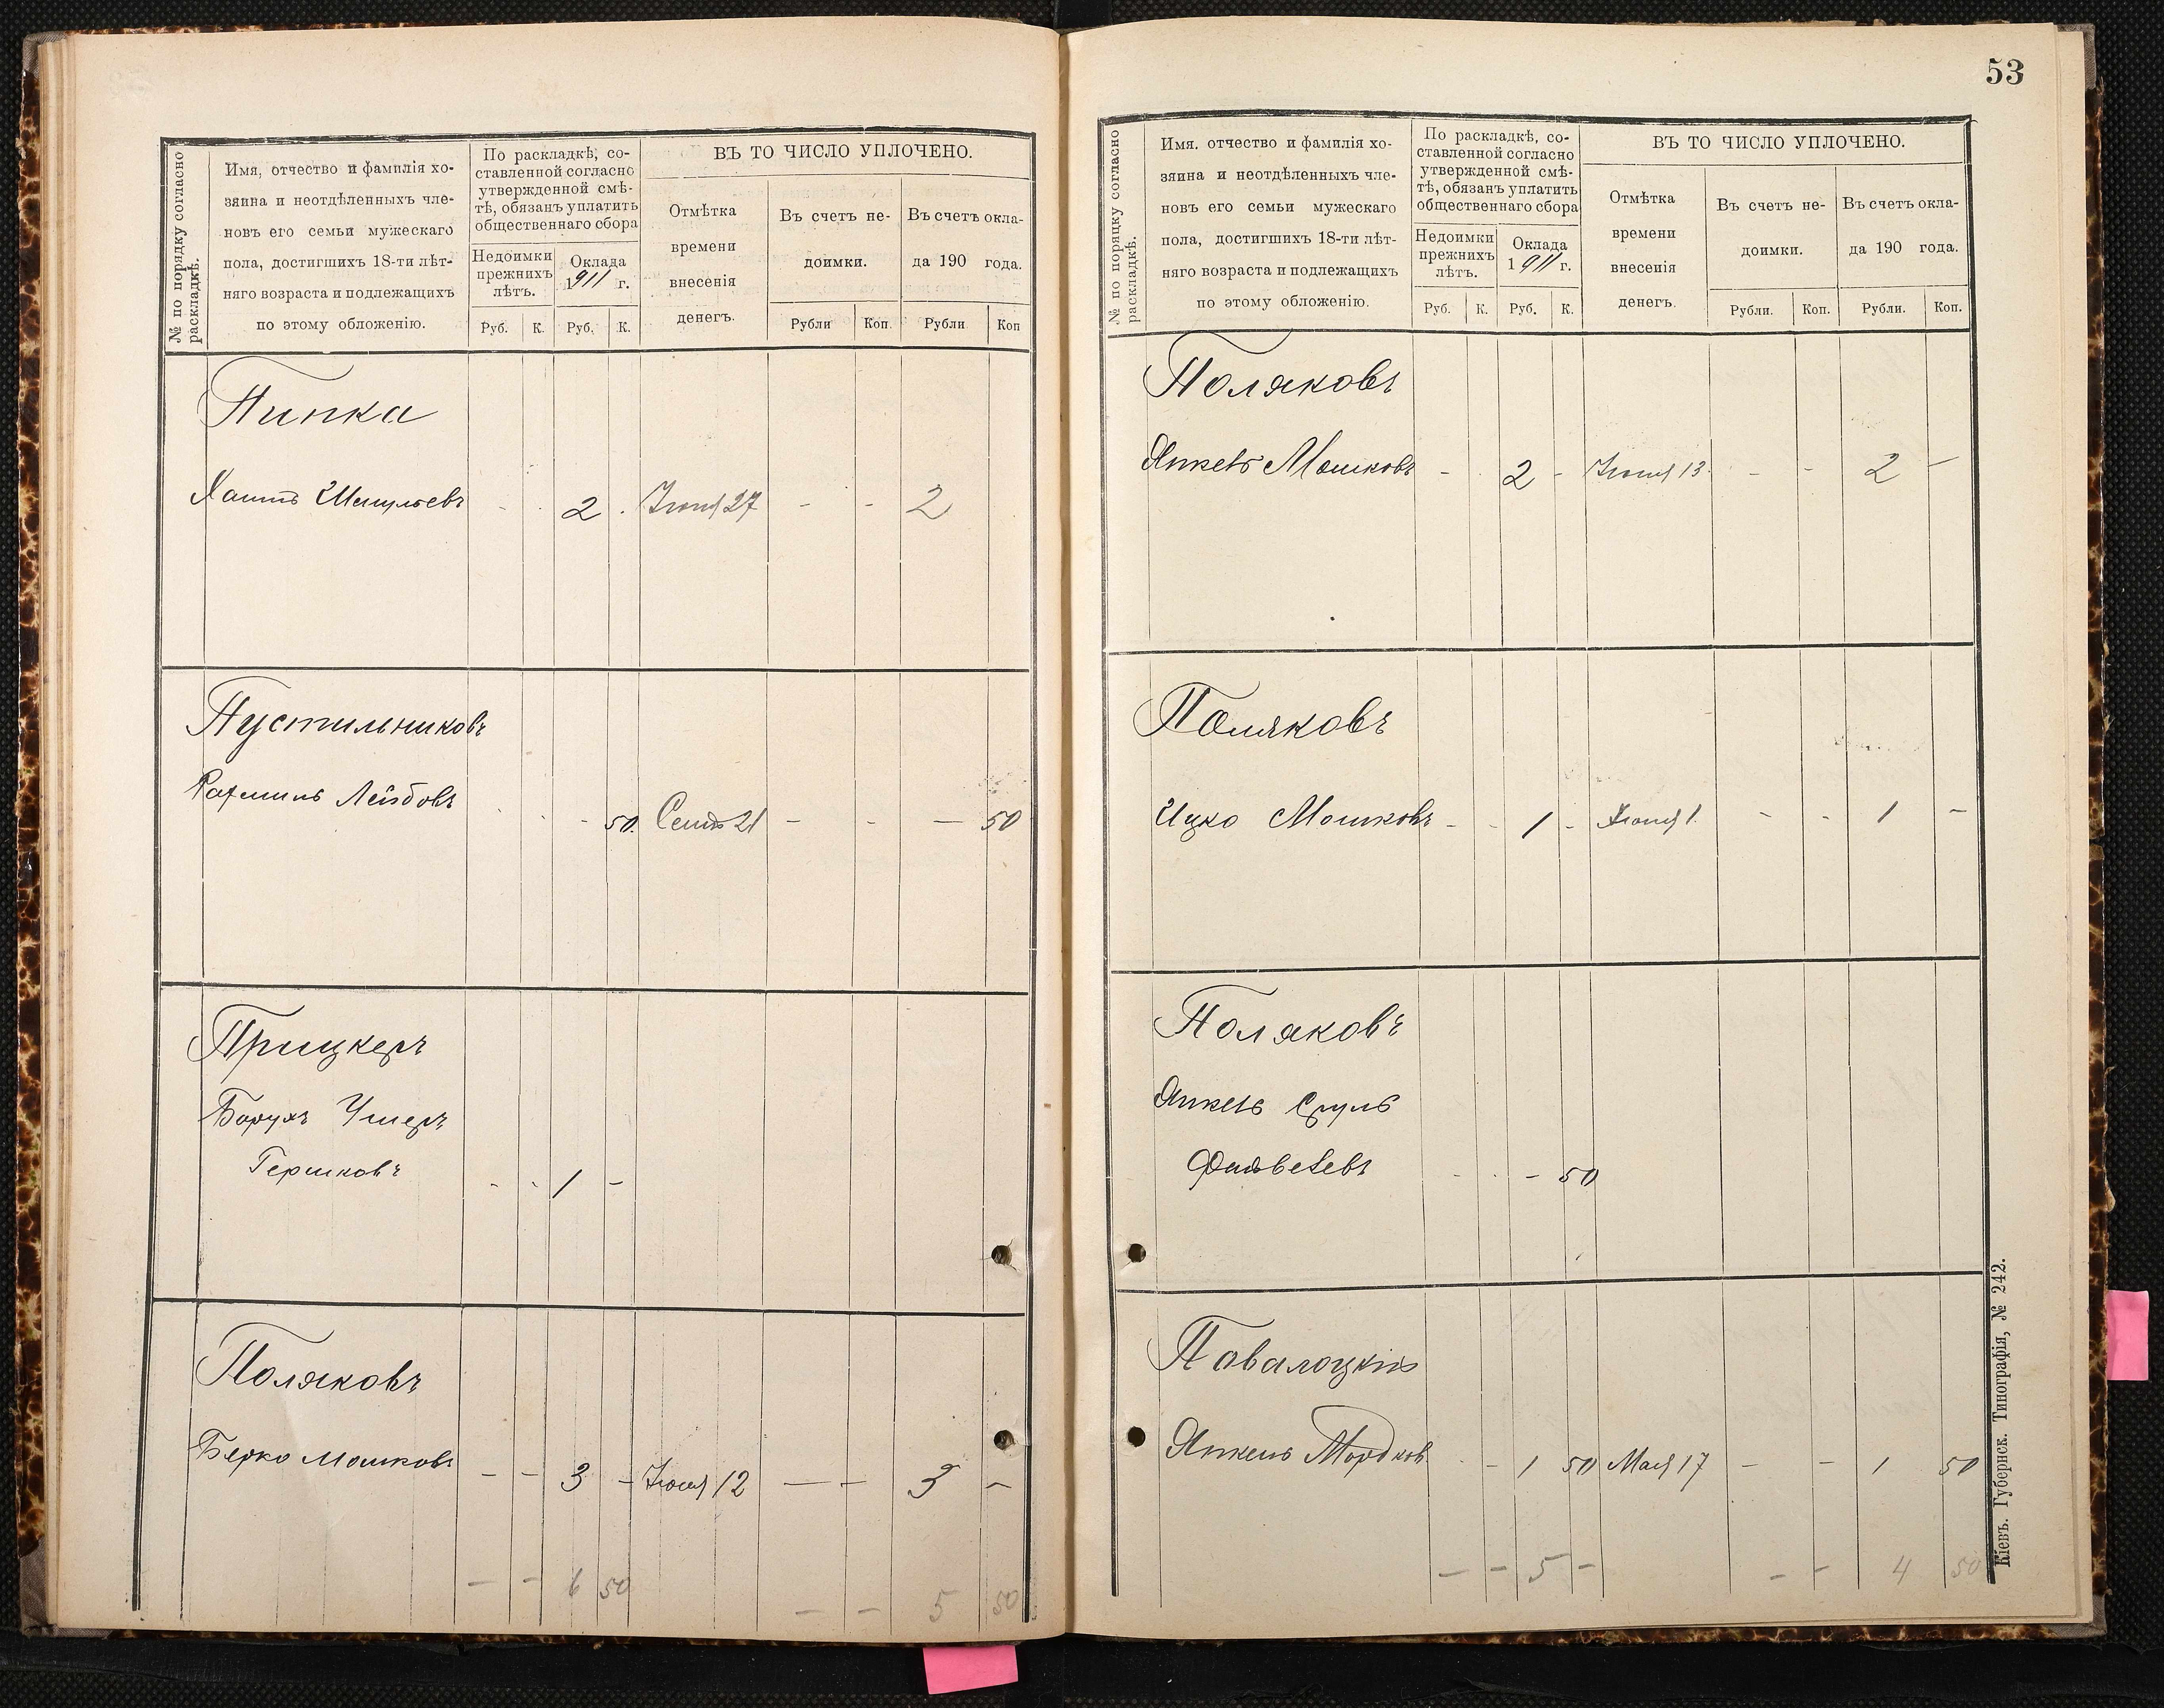 № по порядку согласно
раскладкѣ.
Имя, отчество и фамилія хо-
зяина и неотдѣленныхъ чле-
новъ его семьи мужескаго
пола, достигшихъ 18-ти лѣт-
няго возраста и подлежащихъ
по этому обложенію.
По раскладкѣ, со-
ставленной согласно
утвержденной смѣ-
тѣ, обязанъ уплатить
общественнаго сбора
Недоимки
прежнихъ
лѣтъ.
Оклада
1911 г.
Руб. К. Руб. К.
ВЪ ТО ЧИСЛО УПЛОЧЕНО.
Отмѣтка
времени
внесенія
денегъ.
Въ счетъ не-
доимки.
Въ счетъ окла-
да 190 года.
Рубли Коп. Рубли Коп
Пипка
2 - - 2
Пустильниковъ
Рахмиль Лейбовъ
- 50. Сент 21 - - — 50
Прицкеръ
Борухъ Ушеръ
Гершковъ
- - 1 -
Поляковъ
Берко Мошковъ
- - 3 - Іюня 12 — - 3 -
— - 6 50
— — 5 50
53
№ по порядку согласно
раскладкѣ.
Имя. отчество и фамилія хо-
зяина и неотдѣленныхъ чле-
новъ его семьи мужескаго
пола, достигшихъ 18-ти лѣт-
няго возраста и подлежащихъ
по этому обложенію.
По раскладкѣ, со-
ставленной согласно
утвержденной смѣ-
тѣ, обязанъ уплатить
общественнаго сбора
Недоимки
прежнихъ
лѣтъ.
Оклада
1911 г.
Руб. К. Руб. К.
ВЪ ТО ЧИСЛО УПЛОЧЕНО.
Отмѣтка
времени
внесенія
денегъ.
Въ счетъ не-
доимки.
Въ счетъ окла-
да 190 года.
Рубли. Коп. Рубли. Коп.
Поляковъ
Янкель Мошковъ
- 2 - Іюня 13. - - 2 -
Поляковъ
Ицко Мошковъ
- - 1 - Іюня 1. - - 1 -
Поляковъ
Янкель Сруль
- 50
Паволоцкій
Янкель Мордков.
- - 1 50 Мая 17 - - 1 50
— - 5 -
- - 4 50
Кіевъ. Губернск. Типографія, № 242.